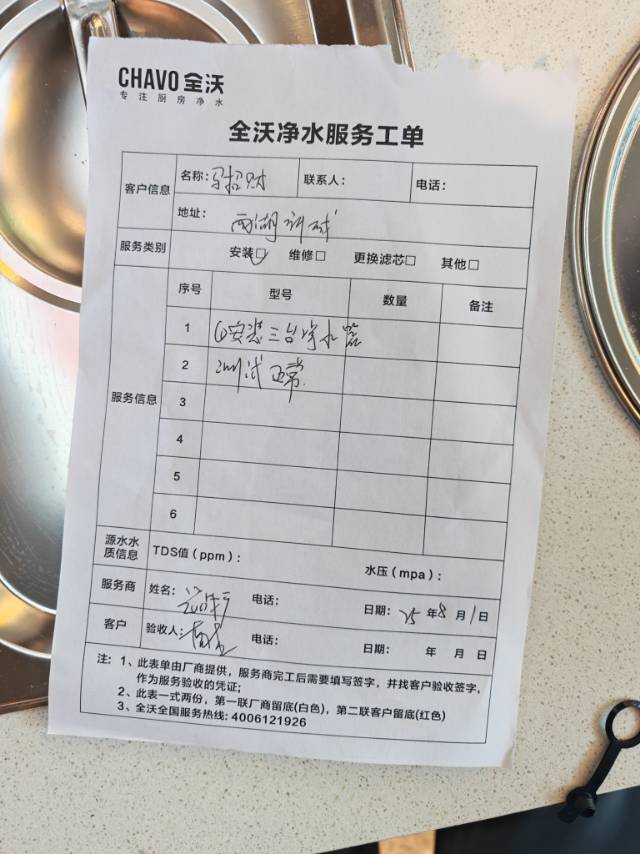 CHAVO 全沃
专注厨房净水
全沃净水服务工单
客户信息
名称: 招财 联系人: 电话:
地址: 西湖
服务类别 安装□ 维修□ 更换滤芯□ 其他□
服务信息
序号 型号 数量 备注
1 安装三台净水器
2 测试正常
3
4
5
6
源水水质信息 TDS值(ppm): 水压(mpa):
服务商 姓名: 电话: 日期: 25 年 8 月 1 日
客户 验收人: 电话: 日期: 年 月 日
注: 1、此表单由厂商提供，服务商完工后需要填写签字，并找客户验收签字，
作为服务验收的凭证;
2、此表一式两份，第一联厂商留底(白色)，第二联客户留底(红色)
3、全沃全国服务热线: 4006121926